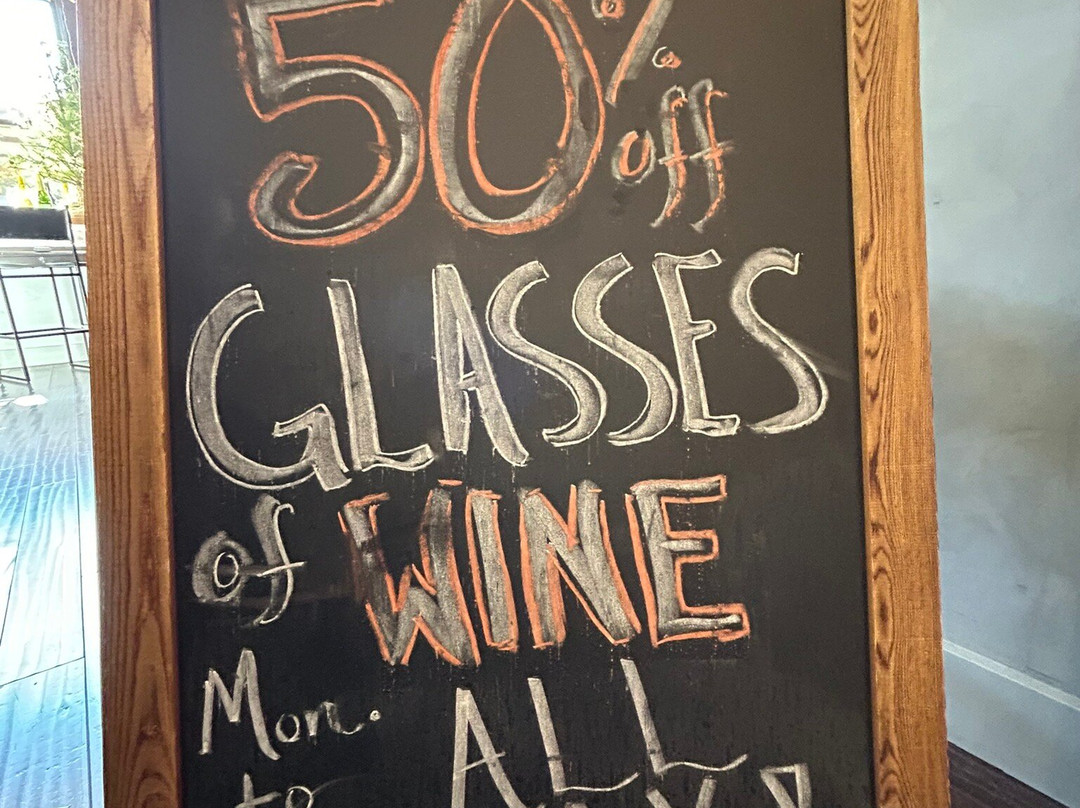 50% off
GLASSES
of WINE
Mon. ALL
to